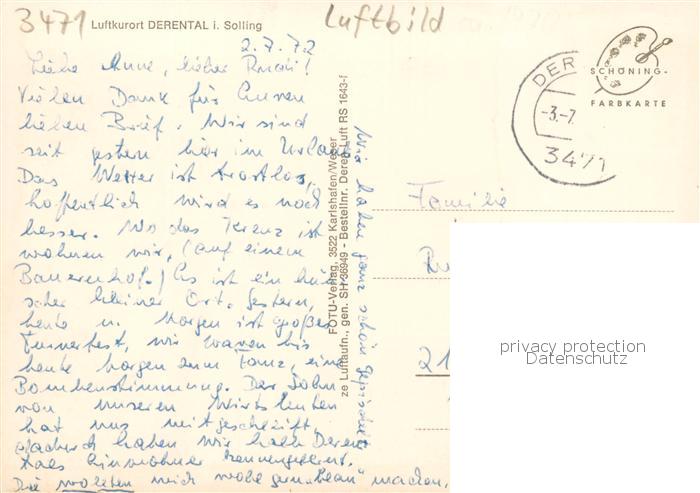 3471 Luftkurort DERENTAL i. Solling
Luftbild
2.7.72
Liebe Anne, lieber Rudi!
Vielen Dank für Euren
lieben Brief. Wir sind
seit gestern hier im Urlaub.
Das Wetter ist trostlos,
hoffentlich wird es noch
besser. Wo das Kreuz ist
wohnen wir, (auf einem
Bauernhof.) Es ist ein hüb-
scher kleiner Ort. Gestern,
heute u. Morgen ist großes
Turnerfest, wir waren bis
heute morgen zum Tanz, eine
Bombenstimmung. Der Sohn
von unseren Wirtsleuten
hat uns mitgeschleift,
dadurch haben wir halb Deren-
tals Einwohner kennengelernt.
Die wollten mich wohl "blau" machen.
Wir haben ganz schön gepichelt
FOTU-Verlag, 3522 Karlshafen/Weser
ze Luftaufn., gen. SH 36949 - Bestellnr. Deren Luft RS 1643-f
SCHÖNING-
FARBKARTE
DER
-3.-7.
3471
Familie
21
privacy protection
Datenschutz